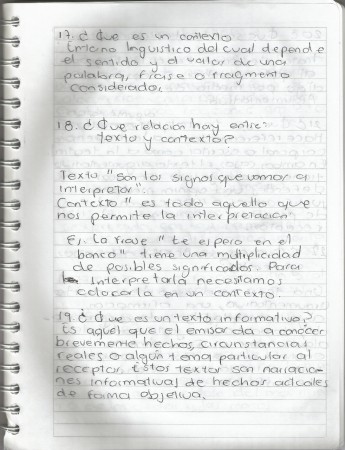 17. ¿ Que es un contexto
Entorno linguistico del cual depende
el sentido y el valor de una
palabra, frase o fragmento
considerado.
18. ¿ Que relacion hay entre
texto y contexto?
Texto "son los signos que vamos a
interpretar".
Contexto " es todo aquello que
nos permite la interpretacion
Ej. La frase " te espero en el
banco" tiene una multiplicidad
de posibles significados. Para
interpretarla necesitamos
colocarla en un contexto.
19. ¿ Que es un texto informativo?
Es aquel que el emisor da a conocer
brevemente hechos, circunstancias
reales o algún tema particular al
receptor. Estos textos son narracio-
nes informativas de hechos actuales
de forma objetiva.